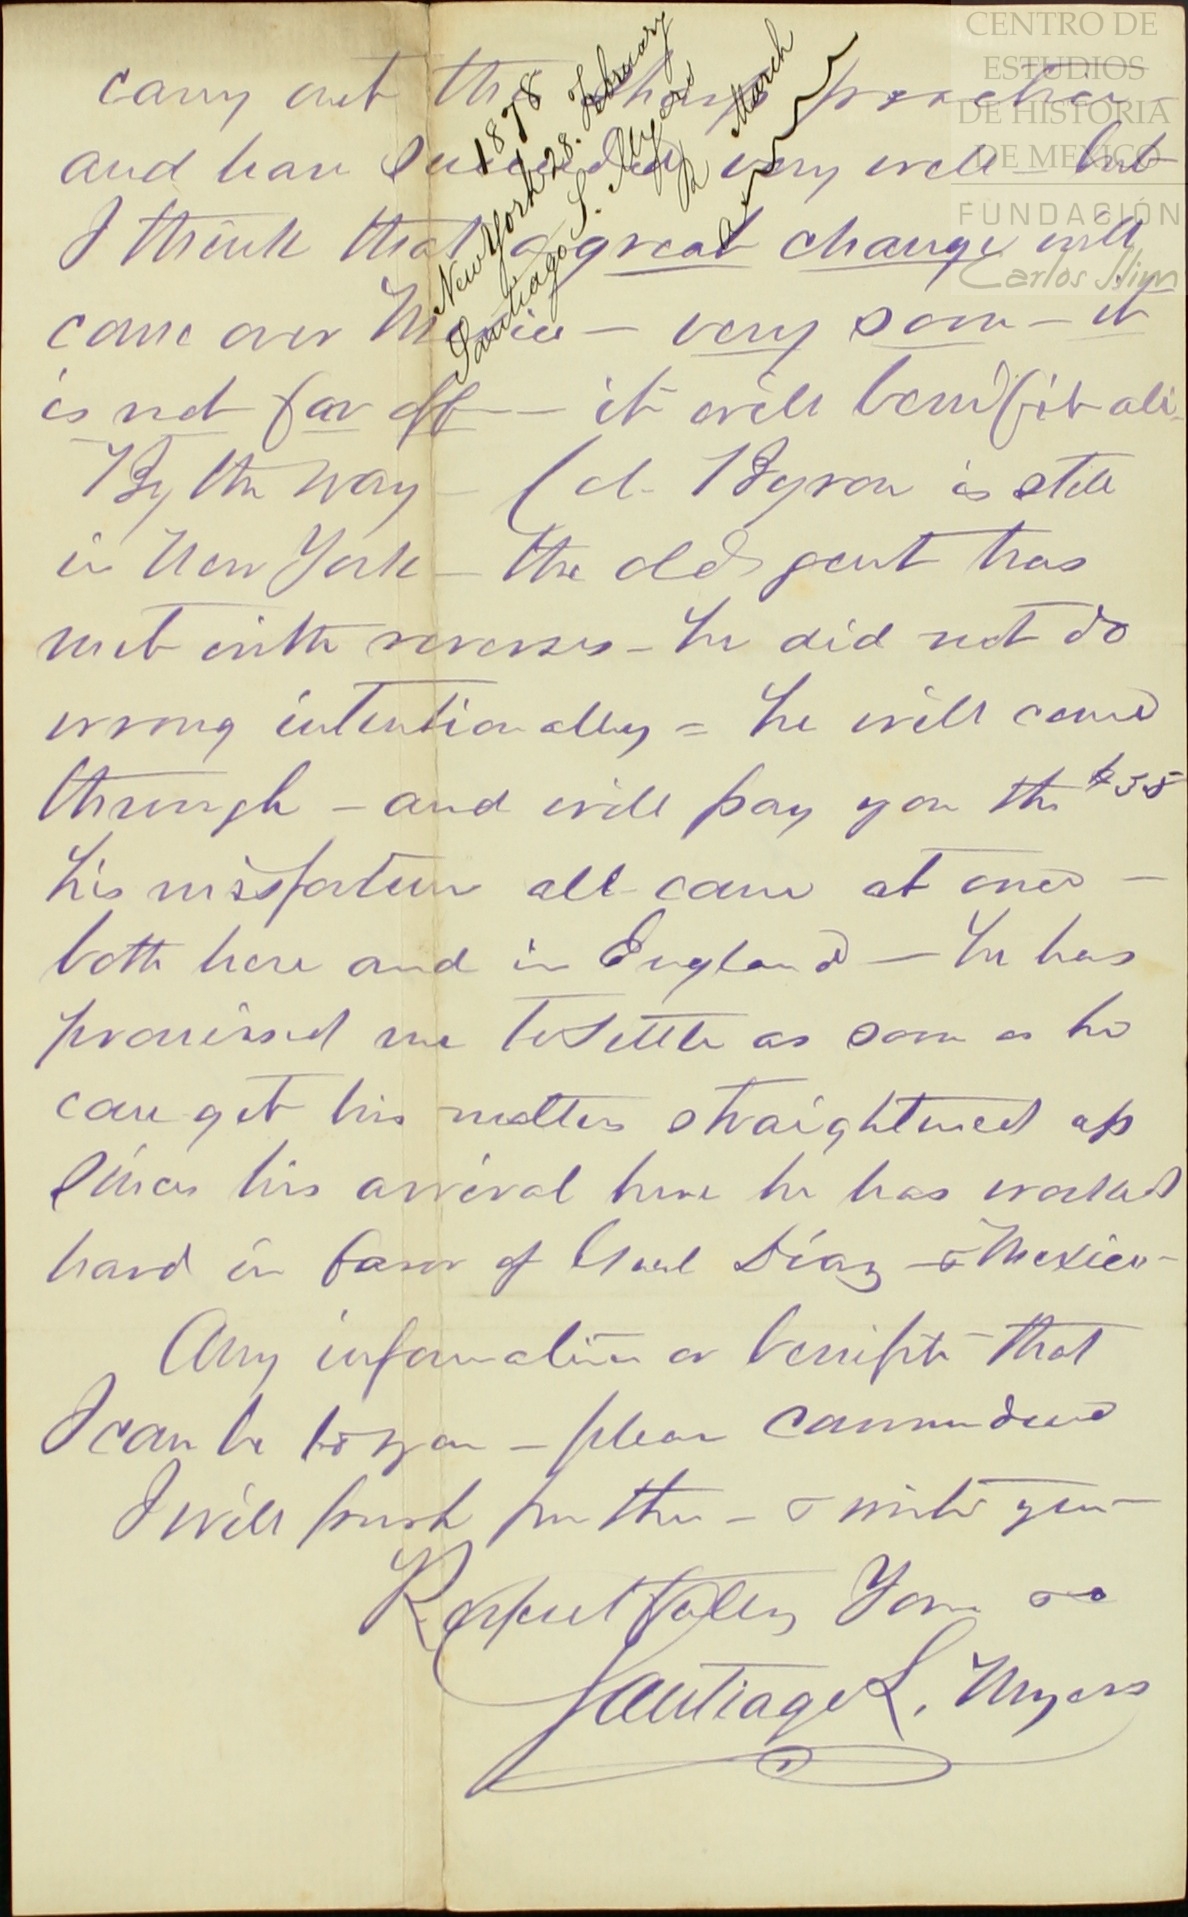 carry out the sharp practice –
and have succeeded very well – but
I think that a great change will
come over Mexico – very soon – it
is not far off – it will benifit all.
By the way – Col. Byron is still
in New York – the old gent has
met with reverses – he did not do
wrong intentionally = he will come
through – and will pay you the $35
his misfortune all came at once –
both here and in England – he has
promised me to settle as soon as he
can get his matters straightened up
Since his arrival here he has worked
hard in favor of Genl Diaz – & Mexico –
Any information or benifit that
I can be to you – please command
I will push further – & write you –
Respectfully Yours
Santiago L. Myers
1878
New York 28. February
Santiago L. Myers
R March
CENTRO DE
ESTUDIOS
DE HISTORIA
DE MEXICO
FUNDACIÓN
Carlos Slim